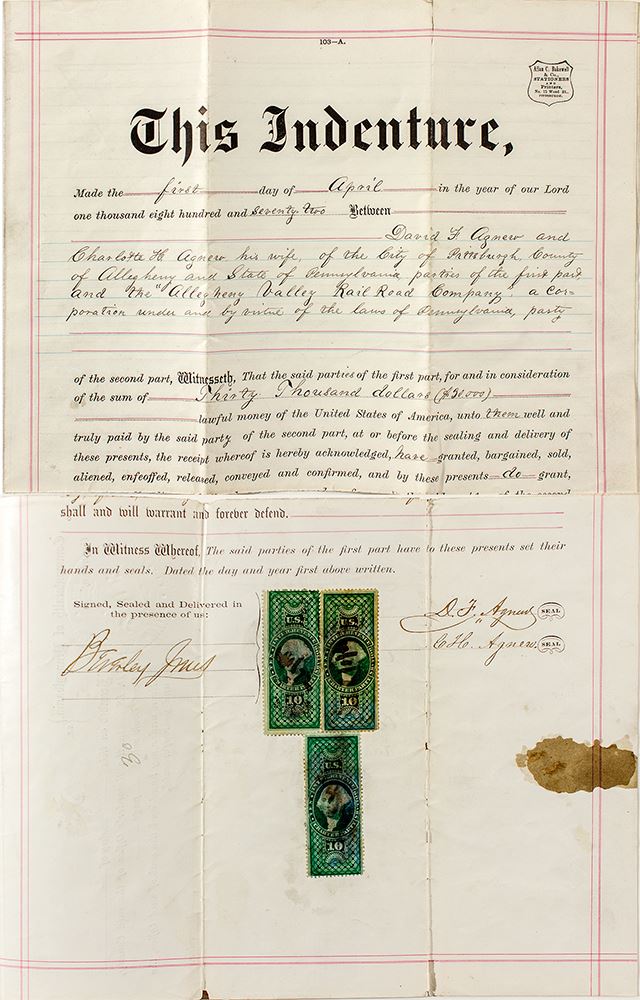 103—A.
Allan C. Bakewell
& Co.,
STATIONERS
AND
Printers,
No. 75 Wood St.,
PITTSBURGH.
This Indenture,
Made the first day of April in the year of our Lord
one thousand eight hundred and Seventy-two Between
David F. Agnew and
Charlotte H. Agnew his wife, of the City of Pittsburgh, County
of Allegheny and State of Pennsylvania parties of the first part
and the "Allegheny Valley Rail Road Company" a cor-
poration under and by virtue of the laws of Pennsylvania, party
of the second part, Witnesseth, That the said parties of the first part, for and in consideration
of the sum of Thirty Thousand dollars ($30000)
lawful money of the United States of America, unto them well and
truly paid by the said party of the second part, at or before the sealing and delivery of
these presents, the receipt whereof is hereby acknowledged, have granted, bargained, sold,
aliened, enfeoffed, released, conveyed and confirmed, and by these presents do grant,
of the second
shall and will warrant and forever defend.
In Witness Whereof, The said parties of the first part have to these presents set their
hands and seals. Dated the day and year first above written.
Signed, Sealed and Delivered in
the presence of us:
D. F. Agnew SEAL
C. H. Agnew. SEAL
U.S.
10
U.S.
10
U.S.
10